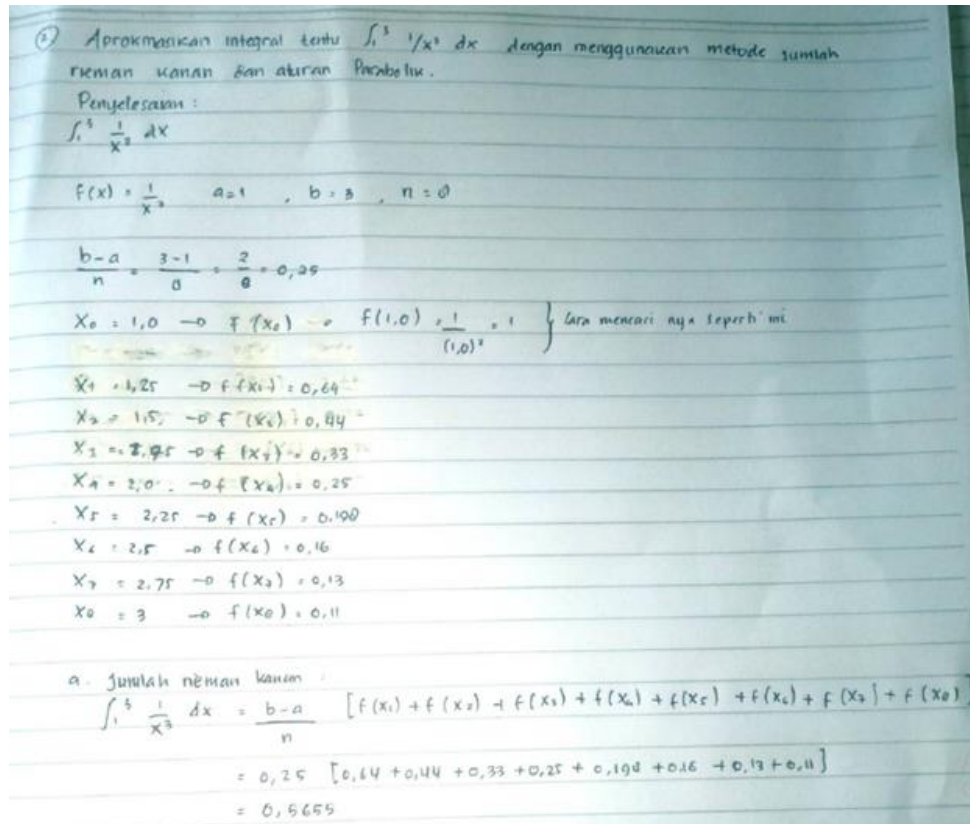 ② Aprokmasikan integral tentu ∫₁³ 1/x² dx dengan menggunakan metode jumlah
rieman kanan dan aturan Parabolik.
Penyelesaian :
∫₁³ 1/x² dx
f(x) = 1/x² a=1 , b = 3 , n = 8
b-a/n = 3-1/8 = 2/8 = 0,25
X₀ = 1,0 → f (x₀) = f(1,0) = 1/(1,0)² = 1 } Cara mencari nya seperti ini
X₁ = 1,25 → f (x₁) = 0,64
X₂ = 1,5 → f (x₂) = 0,44
X₃ = 1,75 → f (x₃) = 0,33
X₄ = 2,0 → f (x₄) = 0,25
X₅ = 2,25 → f (x₅) = 0.198
X₆ = 2,5 → f(x₆) = 0,16
X₇ = 2.75 → f(x₇) = 0,13
X₈ = 3 → f(x₈) = 0,11
a. Jumlah rieman kanan
∫₁³ 1/x² dx = b-a/n [f(x₁) + f(x₂) + f(x₃) + f(x₄) + f(x₅) + f(x₆) + f(x₇) + f(x₈)]
= 0,25 [0,64 + 0,44 + 0,33 + 0,25 + 0,198 + 0.16 + 0,13 + 0,11]
= 0,5655